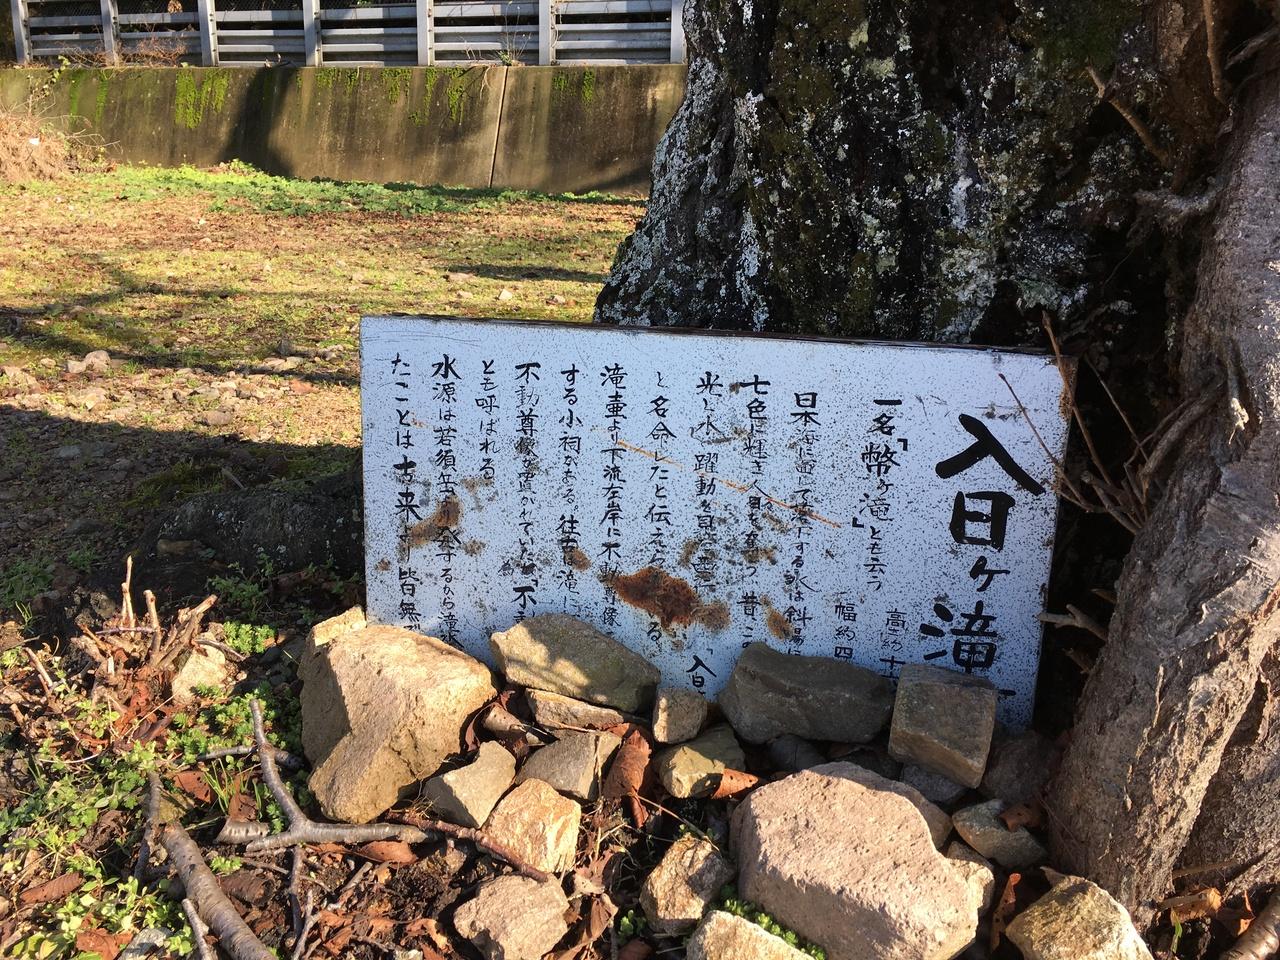 入日ヶ滝
一名「幣ヶ滝」とも云う
高さ約十
幅約四
日本海に面して落下する水は斜陽に
七色に輝き入日を奪う 昔この
光と水 躍動を見 「入日
と名命したと伝えら る
滝壷より下流左岸に不動尊像
する小祠がある。往古は滝に
不動尊像が置かれていた 「不
とも呼ばれる
水源は若須岳 り発するから滝水
たことは古来より皆無